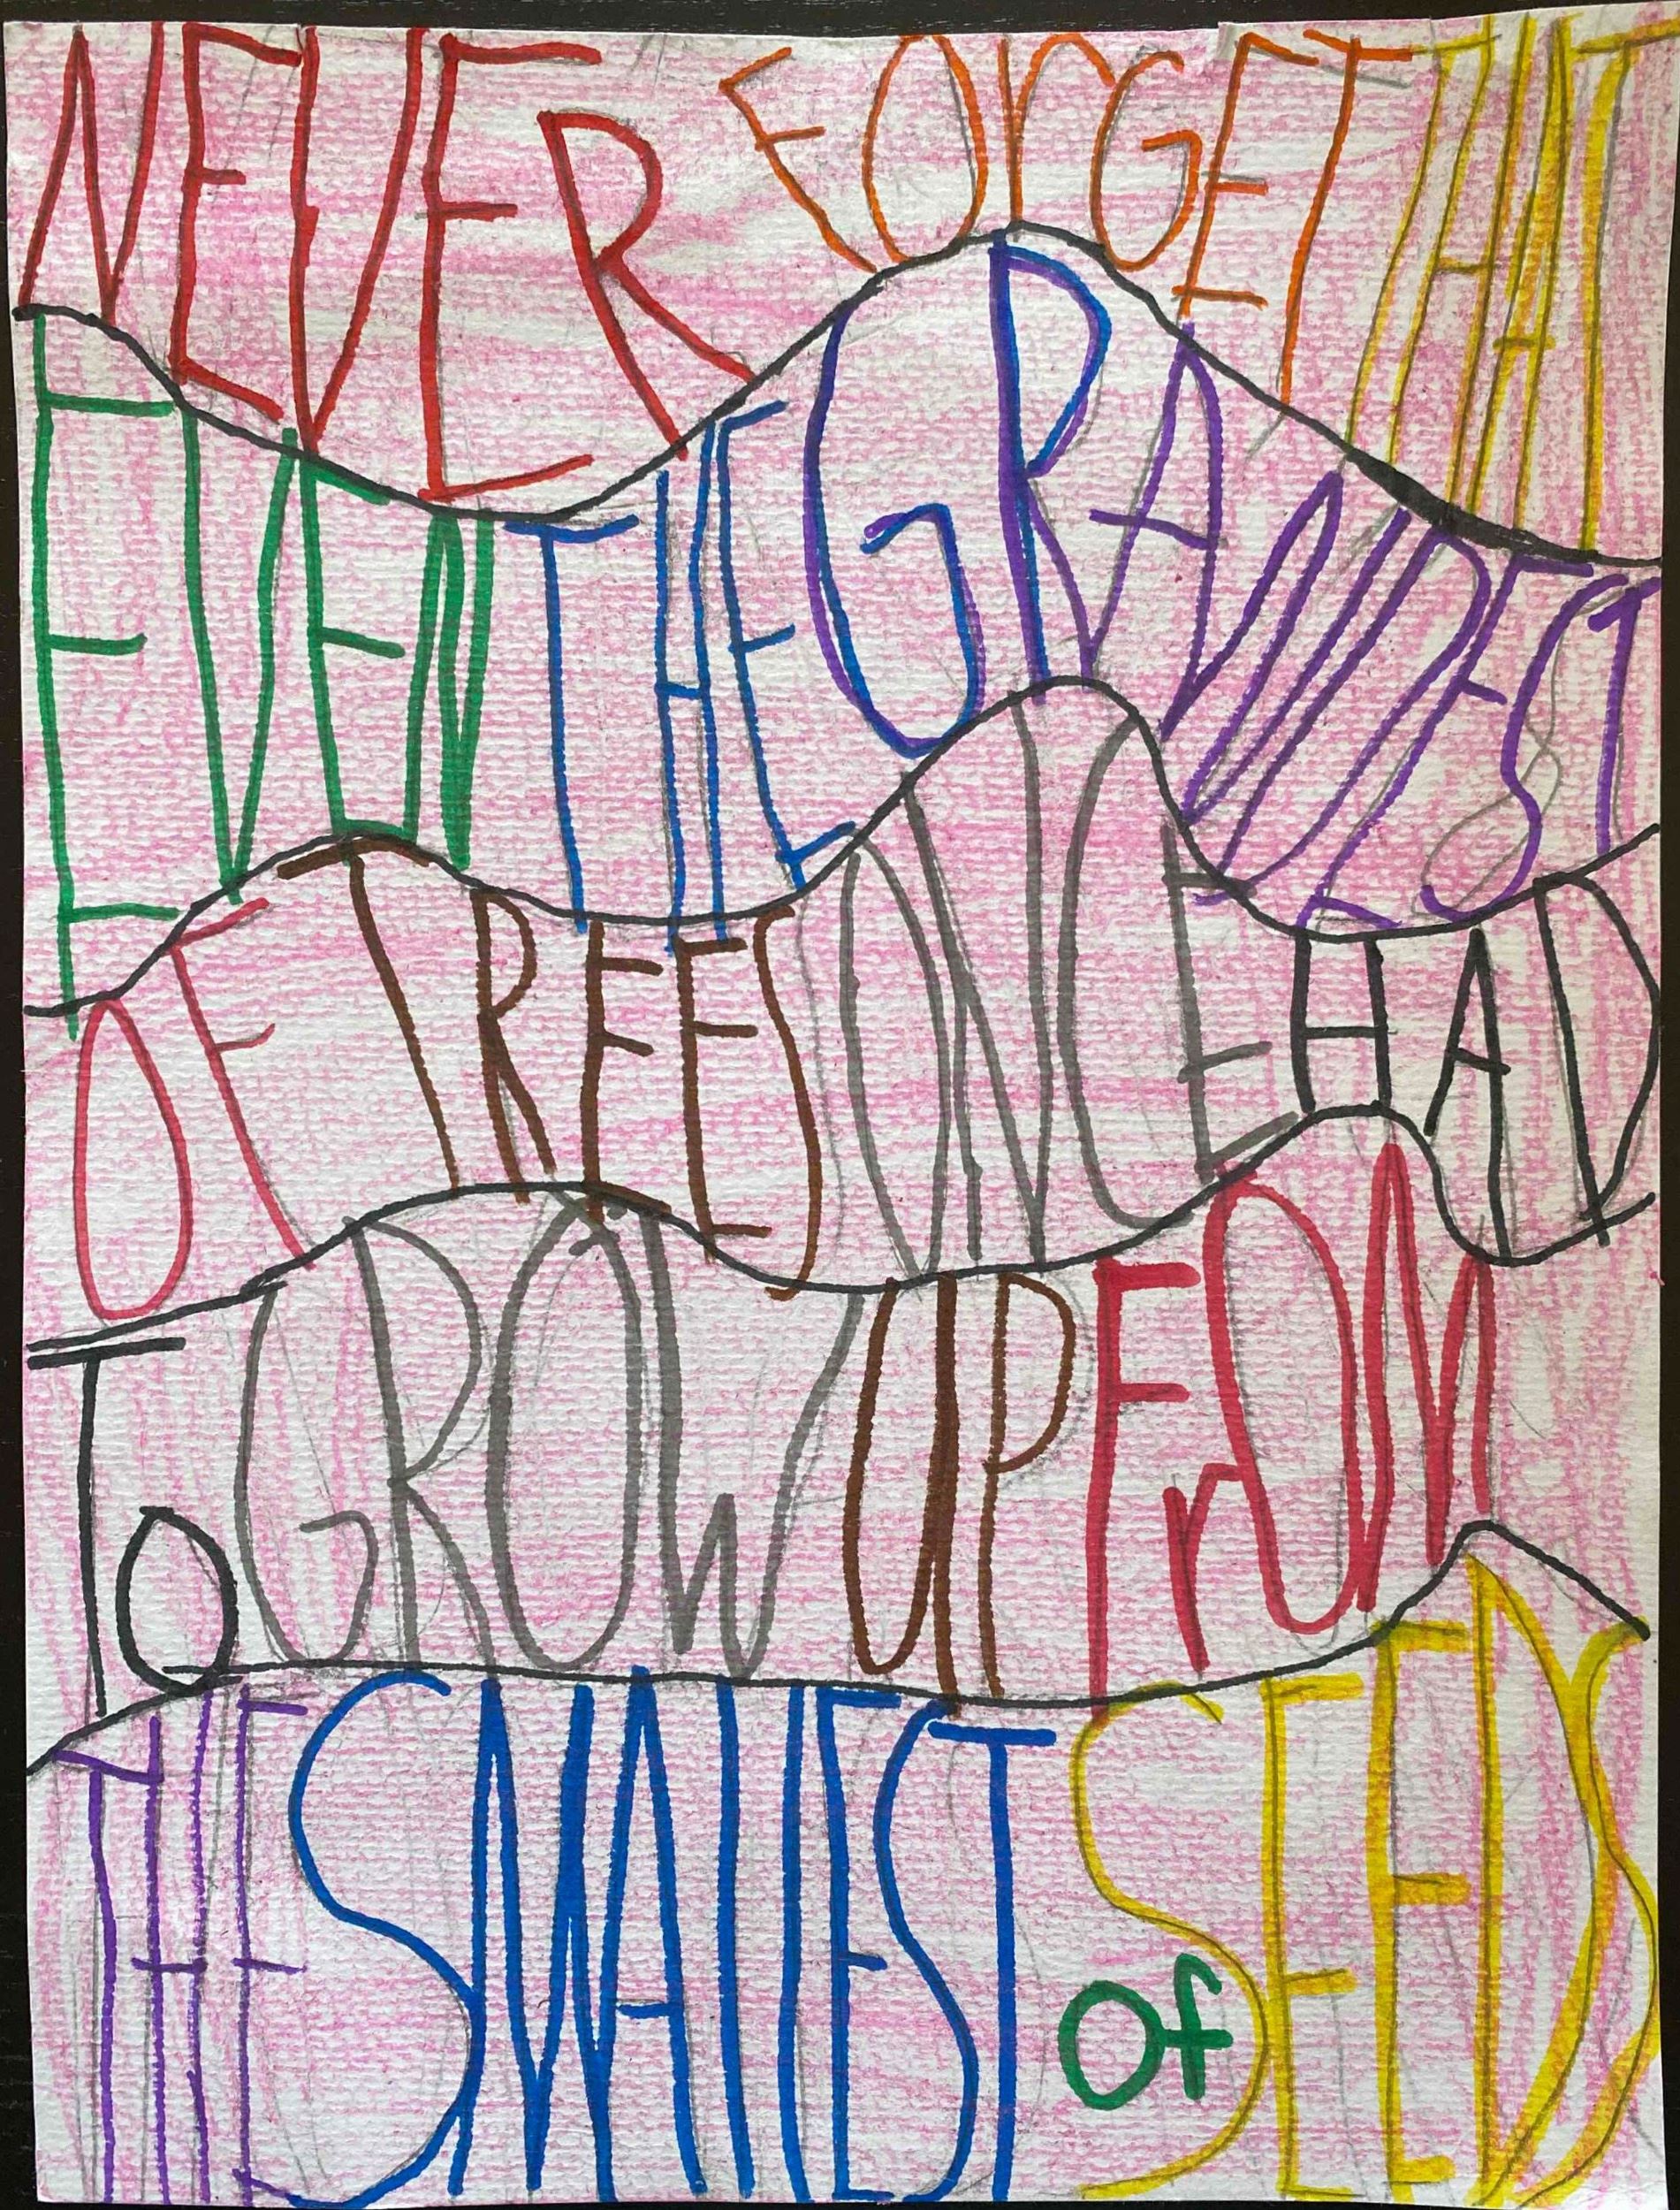 NEVER FOrGET THAT
EVEN THE GRANDEST
OF TREES ONCE HAD
To GROW UP FrOM
THE SMAllEST Of SEEDS